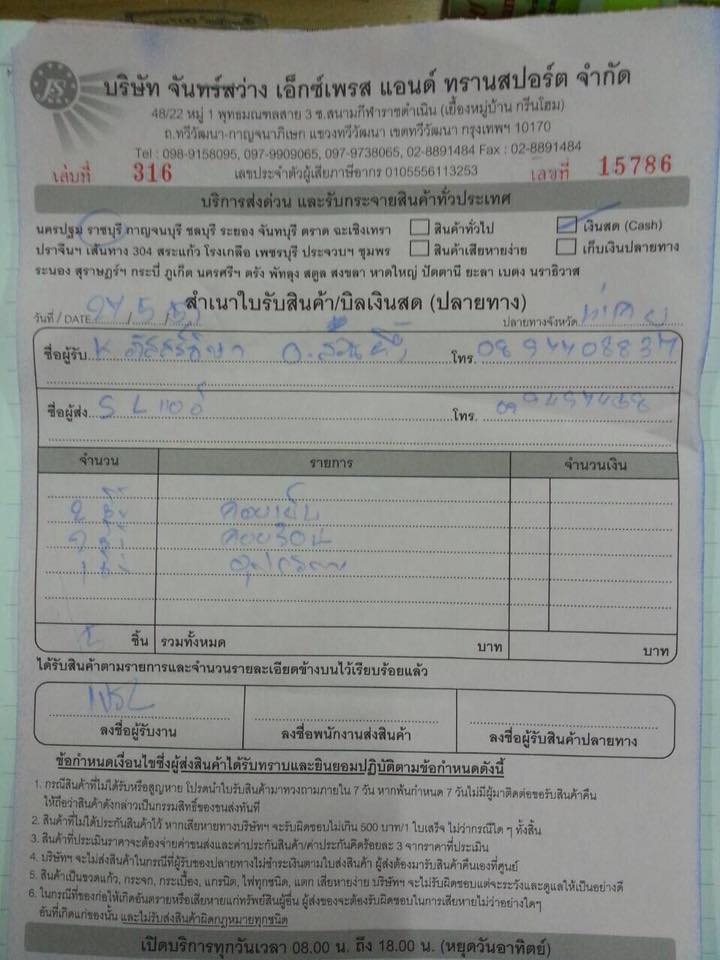 บริษัท จันทร์สว่าง เอ็กซ์เพรส แอนด์ ทรานสปอร์ต จำกัด
48/22 หมู่ 1 พุทธมณฑลสาย 3 ซ.สนามกีฬาราชดำเนิน (เยื้องหมู่บ้าน กรีนโฮม)
ถ.ทวีวัฒนา-กาญจนาภิเษก แขวงทวีวัฒนา เขตทวีวัฒนา กรุงเทพฯ 10170
Tel : 098-9158095, 097-9909065, 097-9738065, 02-8891484 Fax : 02-8891484
เล่มที่ 316 เลขประจำตัวผู้เสียภาษีอากร 0105556113253 เลขที่ 15786
บริการส่งด่วน และรับกระจายสินค้าทั่วประเทศ
นครปฐม ราชบุรี กาญจนบุรี ชลบุรี ระยอง จันทบุรี ตราด ฉะเชิงเทรา สินค้าทั่วไป เงินสด (Cash)
ปราจีนฯ เส้นทาง 304 สระแก้ว โรงเกลือ เพชรบุรี ประจวบฯ ชุมพร สินค้าเสียหายง่าย เก็บเงินปลายทาง
ระนอง สุราษฎร์ฯ กระบี่ ภูเก็ต นครศรีฯ ตรัง พัทลุง สตูล สงขลา หาดใหญ่ ปัตตานี ยะลา เบตง นราธิวาส
สำเนาใบรับสินค้า/บิลเงินสด (ปลายทาง)
วันที่ / DATE 27 / 5 / ปลายทางจังหวัด
ชื่อผู้รับ K. โทร. 0894408837
ชื่อผู้ส่ง S L แอร์ โทร.
จำนวน รายการ จำนวนเงิน
2 คอยเย็น
คอยร้อน
1 อุปกรณ์
ชิ้น รวมทั้งหมด บาท บาท
ได้รับสินค้าตามรายการและจำนวนรายละเอียดข้างบนไว้เรียบร้อยแล้ว
ลงชื่อผู้รับงาน ลงชื่อพนักงานส่งสินค้า ลงชื่อผู้รับสินค้าปลายทาง
ข้อกำหนดเงื่อนไขซึ่งผู้ส่งสินค้าได้รับทราบและยินยอมปฏิบัติตามข้อกำหนดดังนี้
1. กรณีสินค้าที่ไม่ได้รับหรือสูญหาย โปรดนำใบรับสินค้ามาทวงถามภายใน 7 วัน หากพ้นกำหนด 7 วันไม่มีผู้มาติดต่อขอรับสินค้าคืน
ให้ถือว่าสินค้าดังกล่าวเป็นกรรมสิทธิ์ของขนส่งทันที
2. สินค้าที่ไม่ได้ประกันสินค้าไว้ หากเสียหายทางบริษัทฯ จะรับผิดชอบไม่เกิน 500 บาท/1 ใบเสร็จ ไม่ว่ากรณีใด ๆ ทั้งสิ้น
3. สินค้าที่ประเมินราคาจะต้องจ่ายค่าขนส่งและค่าประกันสินค้า/ค่าประกันคิดร้อยละ 3 จากราคาที่ประเมิน
4. บริษัทฯ จะไม่ส่งสินค้าในกรณีที่ผู้รับของปลายทางไม่ชำระเงินตามใบส่งสินค้า ผู้ส่งต้องมารับสินค้าคืนเองที่ศูนย์
5. สินค้าเป็นขวดแก้ว, กระจก, กระเบื้อง, แกรนิต, ไฟทุกชนิด, แตก เสียหายง่าย บริษัทฯ จะไม่รับผิดชอบแต่จะระวังและดูแลให้เป็นอย่างดี
6. ในกรณีที่ของก่อให้เกิดอันตรายหรือเสียหายแก่ทรัพย์สินผู้อื่น ผู้ส่งของจะต้องรับผิดชอบในการเสียหายไม่ว่าอย่างใดๆ
อันที่เกิดแก่ของนั้น และไม่รับส่งสินค้าผิดกฎหมายทุกชนิด
เปิดบริการทุกวันเวลา 08.00 น. ถึง 18.00 น. (หยุดวันอาทิตย์)